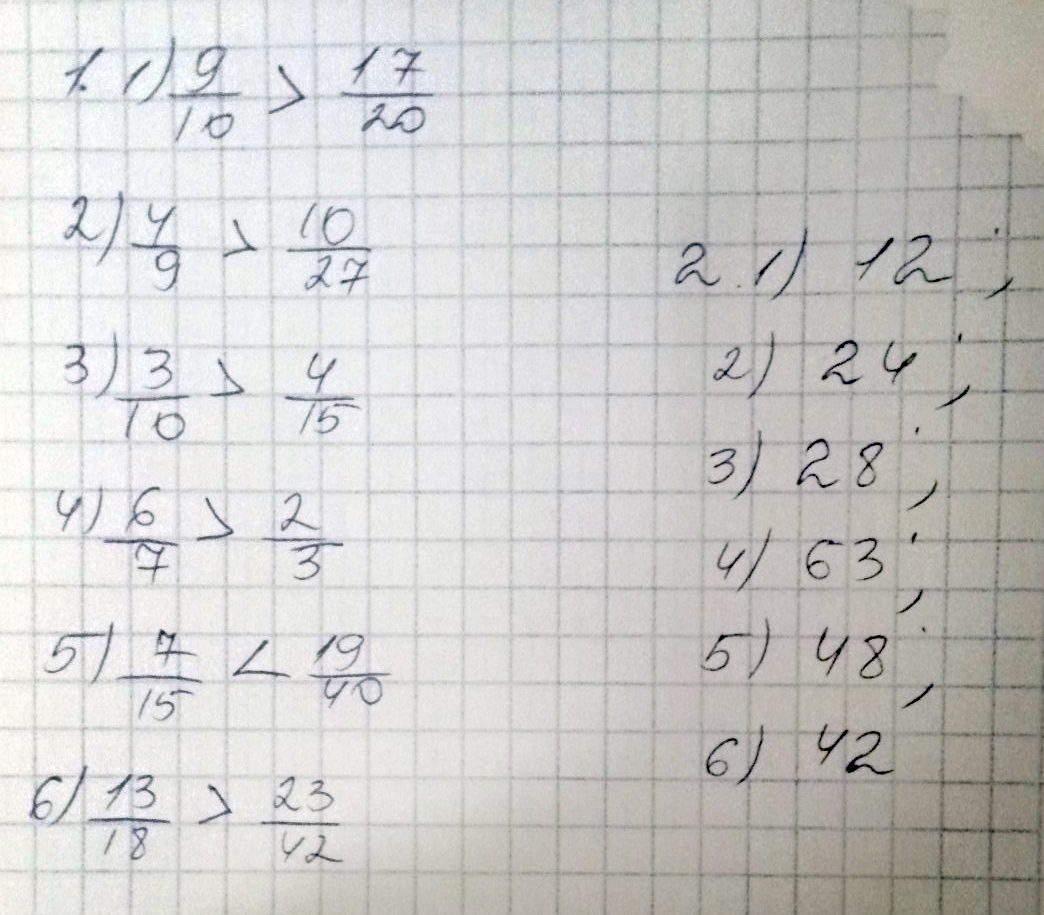 1. 1) 9/10 > 17/20
2) 4/9 > 10/27
3) 3/10 > 4/15
4) 6/7 > 2/3
5) 7/15 < 19/40
6) 13/18 > 23/42
2. 1) 12;
2) 24;
3) 28;
4) 63;
5) 48;
6) 42